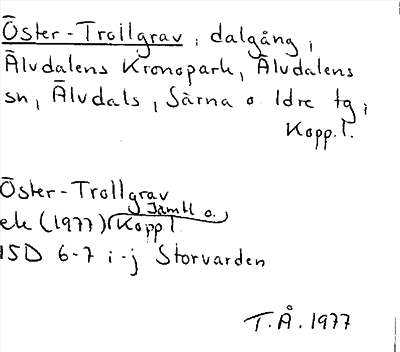 Öster-Trollgrav, dalgång i
Älvdalens Kronopark, Älvdalens
sn, Älvdals, Särna o. Idre tg i
Kopp. l.
Öster-Trollgrav
Jämtl o.
ek (1977) Kopp l
15D 6-7 i-j Storvarden
T.Å. 1977